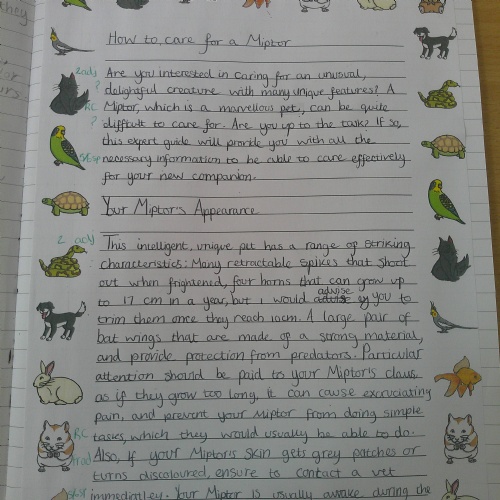 they
How to care for a Miptor
2adj Are you interested in caring for an unusual,
? delightful creature with many unique features? A
RC Miptor, which is a marvellous pet, can be quite
? diffult to care for. Are you up to the task? If so,
this expert guide will provide you with all the
necessary information to be able to care effectively
for your new companion.
Your Miptor's Appearance
2 adj This intelligent, unique pet has a range of striking
characteristics: Many retractable spikes that shoot
out when frightened, four horns that can grow up
to 17 cm in a year, but I would advise you to
trim them once they reach 10cm. A large pair of
bat wings that are made of a strong material,
and provide protection from predators. Particular
attention should be paid to your Miptor's claws
as if they grow too long, it can cause excruciating
pain, and prevent your Miptor from doing simple
RC tasks, which they would usually be able to do.
Also, if your Miptor's skin gets grey patches or
turns discoloured, ensure to contact a vet
immediatley. Your Miptor is usually awake during the